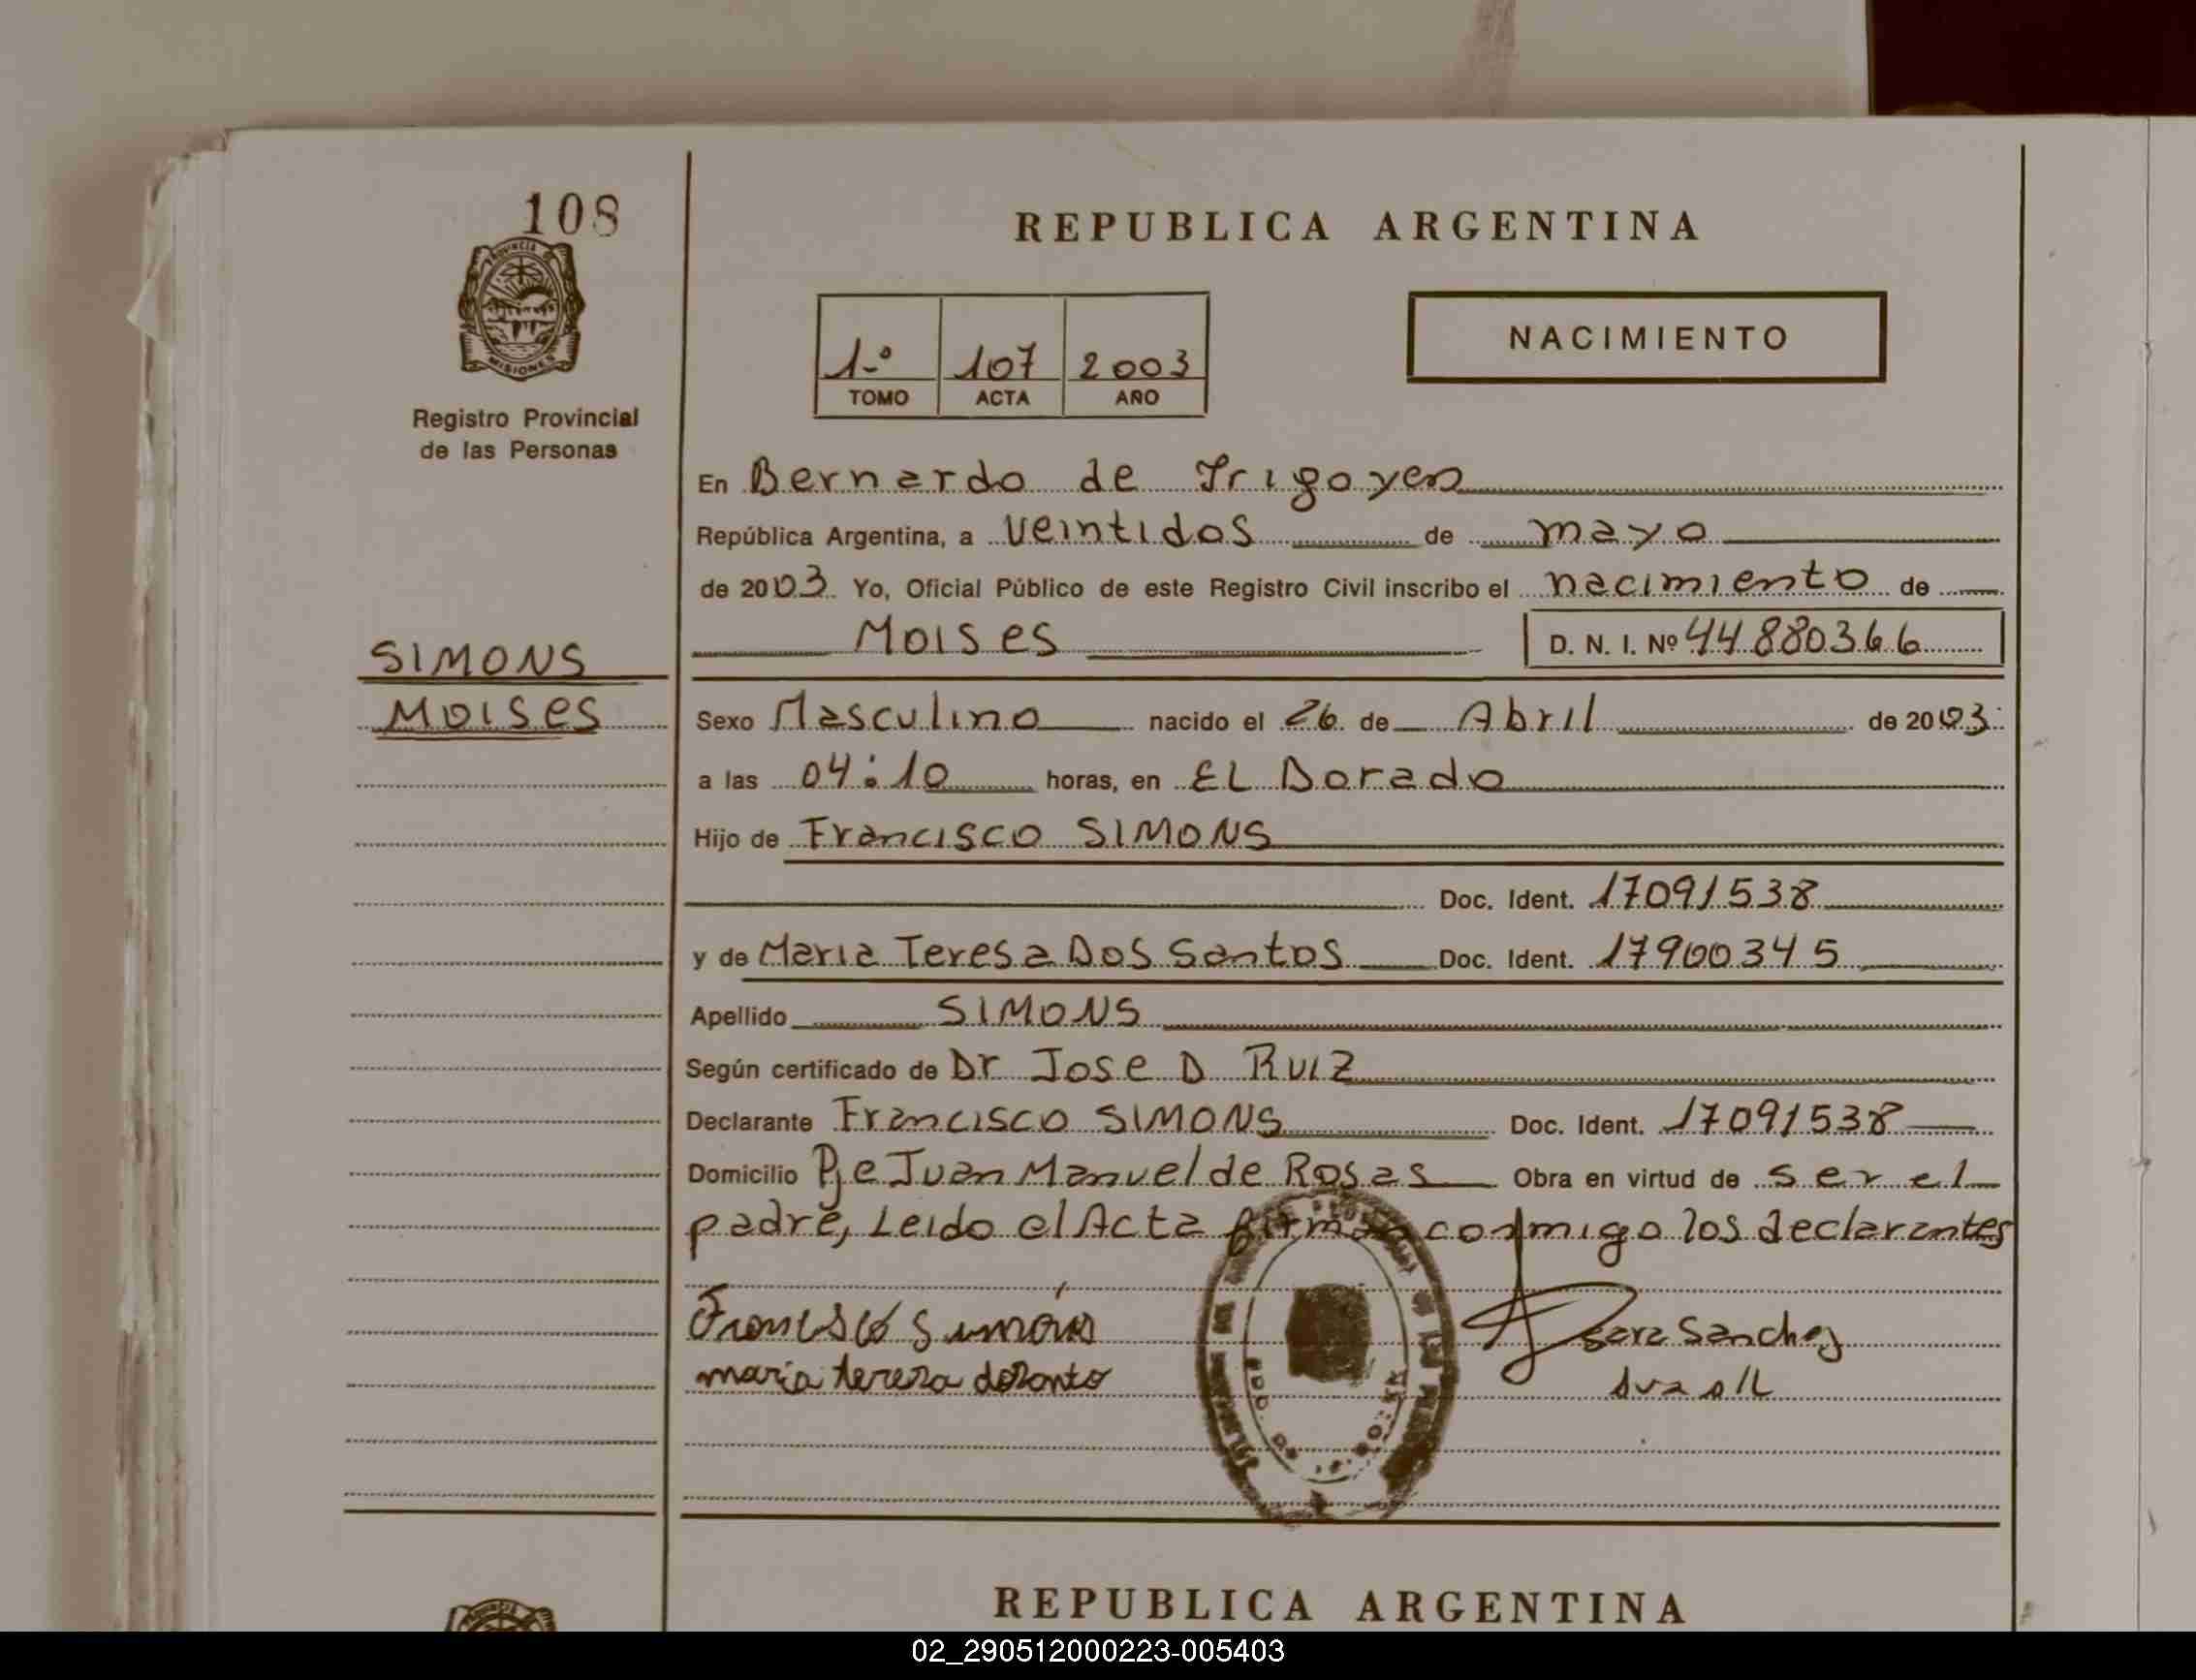 108
PROVINCIA DE
MISIONES
Registro Provincial
de las Personas
SIMONS
Moises
REPUBLICA ARGENTINA
1º 107 2003
TOMO ACTA AÑO
NACIMIENTO
En Bernardo de Irigoyen
República Argentina, a veintidos de mayo
de 2003 Yo, Oficial Público de este Registro Civil inscribo el nacimiento de
Moises D. N. I. Nº 44880366
Sexo Masculino nacido el 26 de Abril de 2003
a las 04:10 horas, en EL Dorado
Hijo de Francisco SIMONS
Doc. Ident. 17091538
y de Maria Teresa Dos Santos Doc. Ident. 17900345
Apellido SIMONS
Según certificado de Dr Jose D Ruiz
Declarante Francisco SIMONS Doc. Ident. 17091538
Domicilio Pje Juan Manuel de Rosas Obra en virtud de ser el
padre, Leido el Acta firman conmigo los declarantes
Francisco Simons
Sara Sanchez
maria teresa dosanto
REPUBLICA ARGENTINA
02_290512000223-005403